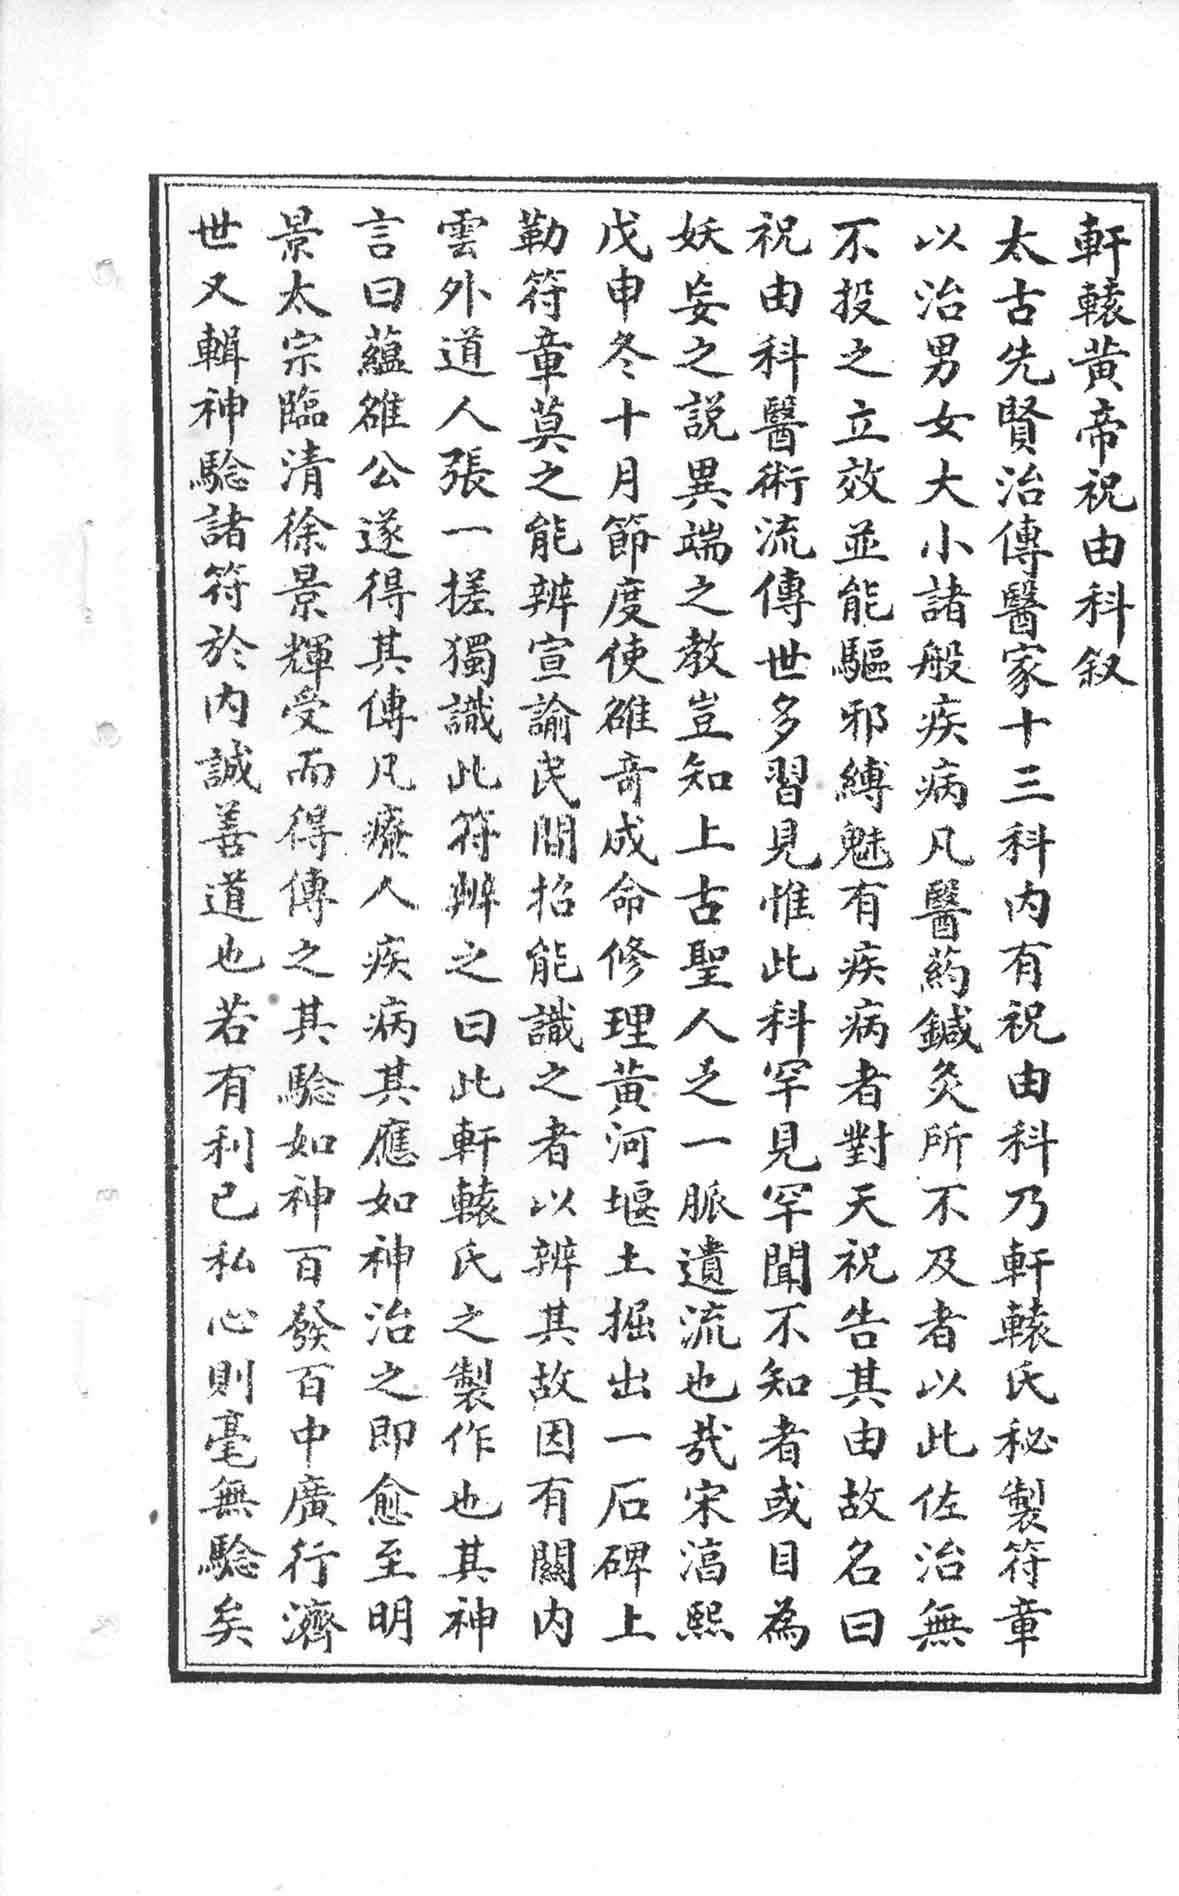 軒轅黃帝祝由科叙
太古先賢治傳醫家十三科内有祝由科乃軒轅氏秘製符章
以治男女大小諸般疾病凡醫葯鍼灸所不及者以此佐治無
不投之立效並能驅邪縛魅有疾病者對天祝告其由故名曰
祝由科醫術流傳世多習見惟此科罕見罕聞不知者或目為
妖妄之説異端之教豈知上古聖人之一脈遺流也哉宋湻熙
戊申冬十月節度使雒竒成命修理黃河堰土掘出一石碑上
勒符章莫之能辨宣諭民間招能識之者以辨其故因有關内
雲外道人張一搓獨識此符辨之曰此軒轅氏之製作也其神
言曰蘊雒公遂得其傳凡療人疾病其應如神治之即愈至明
景太宗臨清徐景輝受而得傳之其騐如神百發百中廣行濟
世又輯神騐諸符於内誠善道也若有利已私心則毫無騐矣